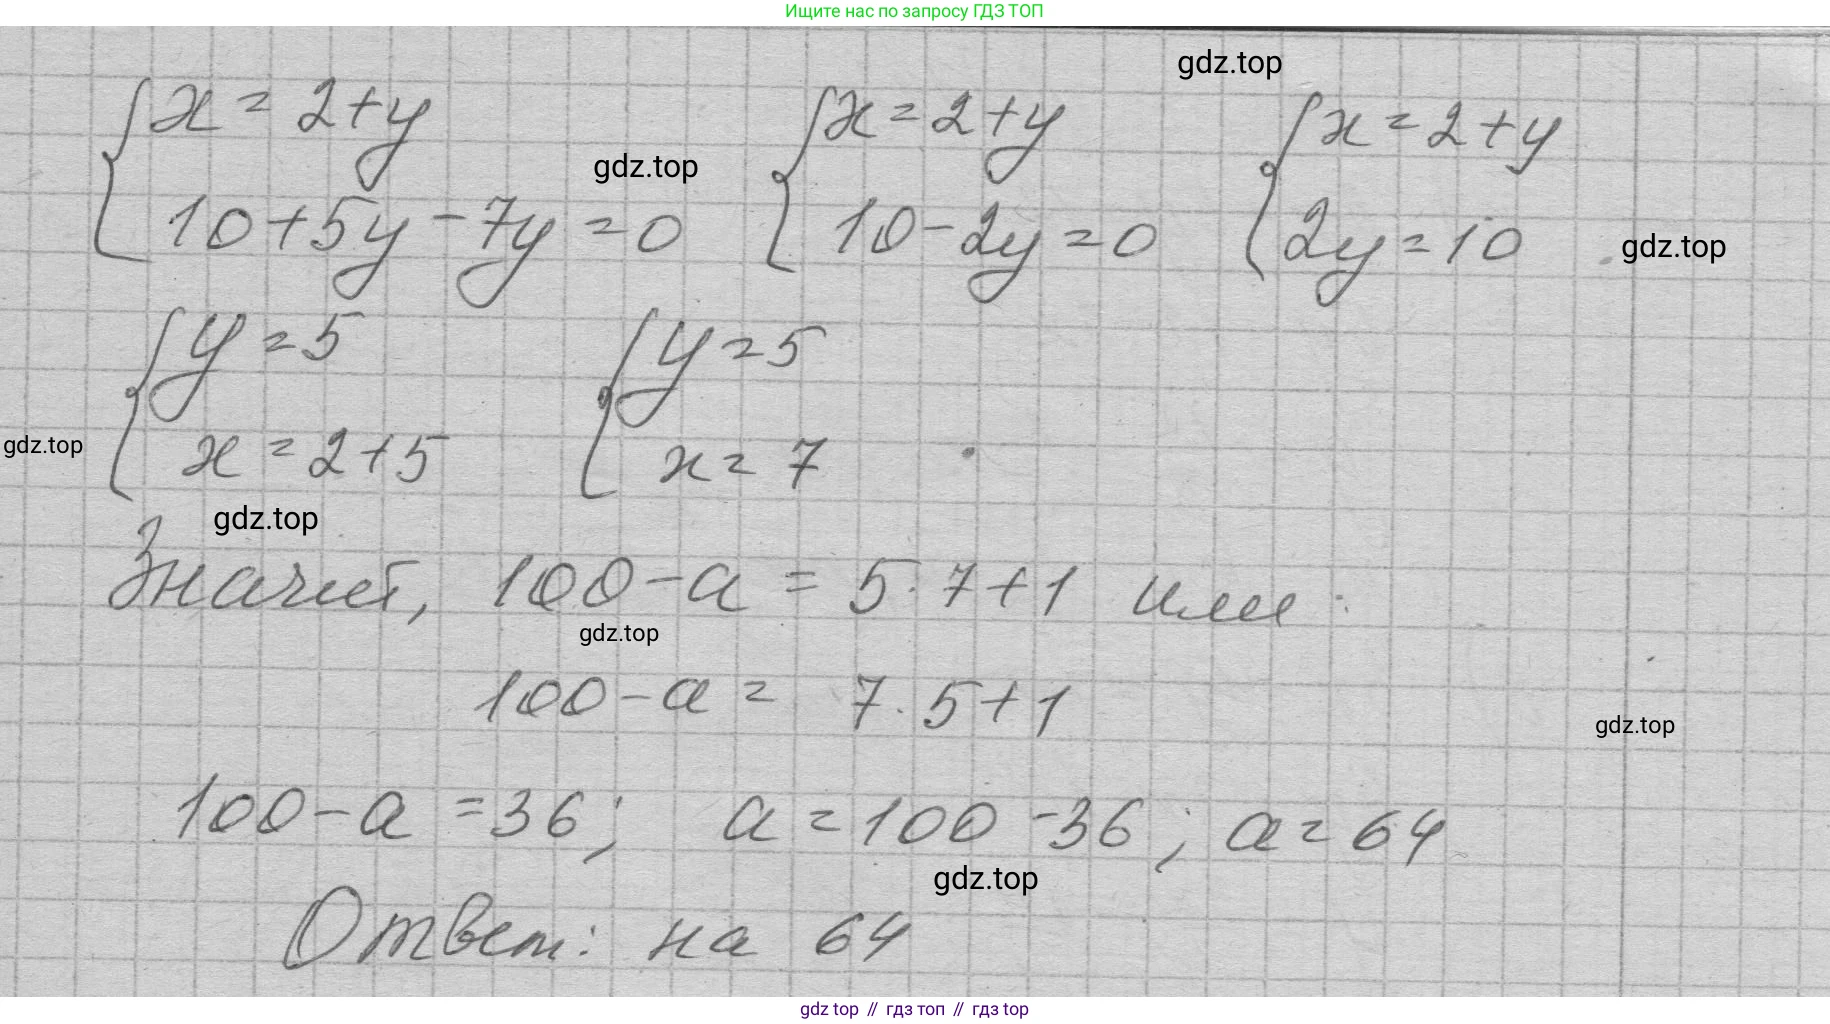 Ищите нас по запросу ГДЗ ТОП
gdz.top
x = 2 + y   x = 2 + y   x = 2 + y
gdz.top
10 + 5y - 7y = 0   10 - 2y = 0   2y = 10
gdz.top
y = 5   y = 5
gdz.top
x = 2 + 5   x = 7
gdz.top
Значит, 100 - a = 5 · 7 + 1 или:
gdz.top
100 - a = 7 · 5 + 1
gdz.top
100 - a = 36; a = 100 - 36; a = 64
gdz.top
Ответ: на 64
gdz top // гдз топ // гдз top